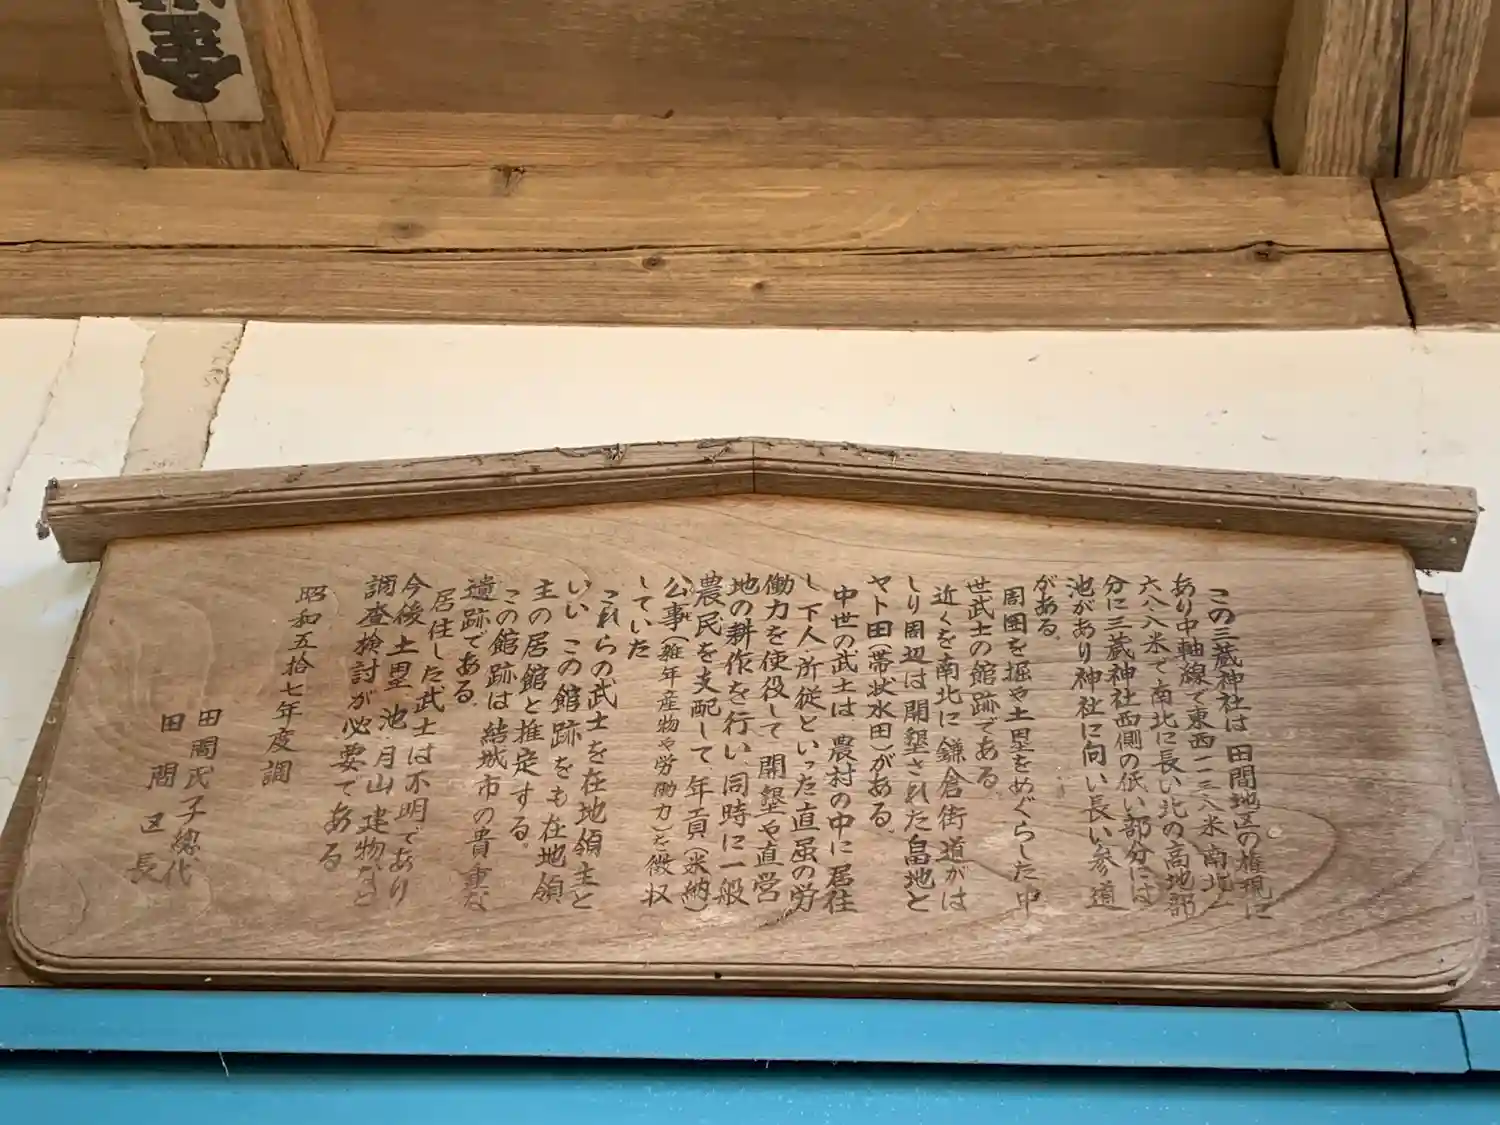 この三蔵神社は 田間地区の権現に
あり中軸線で東西一三八米 南北一
六八八米で南北に長い北の高地部
分に三蔵神社西側の低い部分には
池があり神社に向い長い参道
がある。
周囲を掘や土塁をめぐらした中
世武士の館跡である。
近くを南北に鎌倉街道がは
しり周辺は開墾された畠地と
ヤト田(帯状水田)がある。
中世の武士は 農村の中に居住
し 下人 所従といった直属の労
働力を使役して 開墾や直営
地の耕作を行い 同時に一般
農民を支配して 年貢(米納)
公事(雑年産物や労働力)を徴収
していた
これらの武士を在地領主と
いい この館跡をも在地領
主の居館と推定する。
この館跡は 結城市の貴重な
遺跡である。
居住した武士は不明であり
今後 土塁 池 月山 建物など
調査検討が必要である
昭和五拾七年度調
田間氏子總代
田間区長